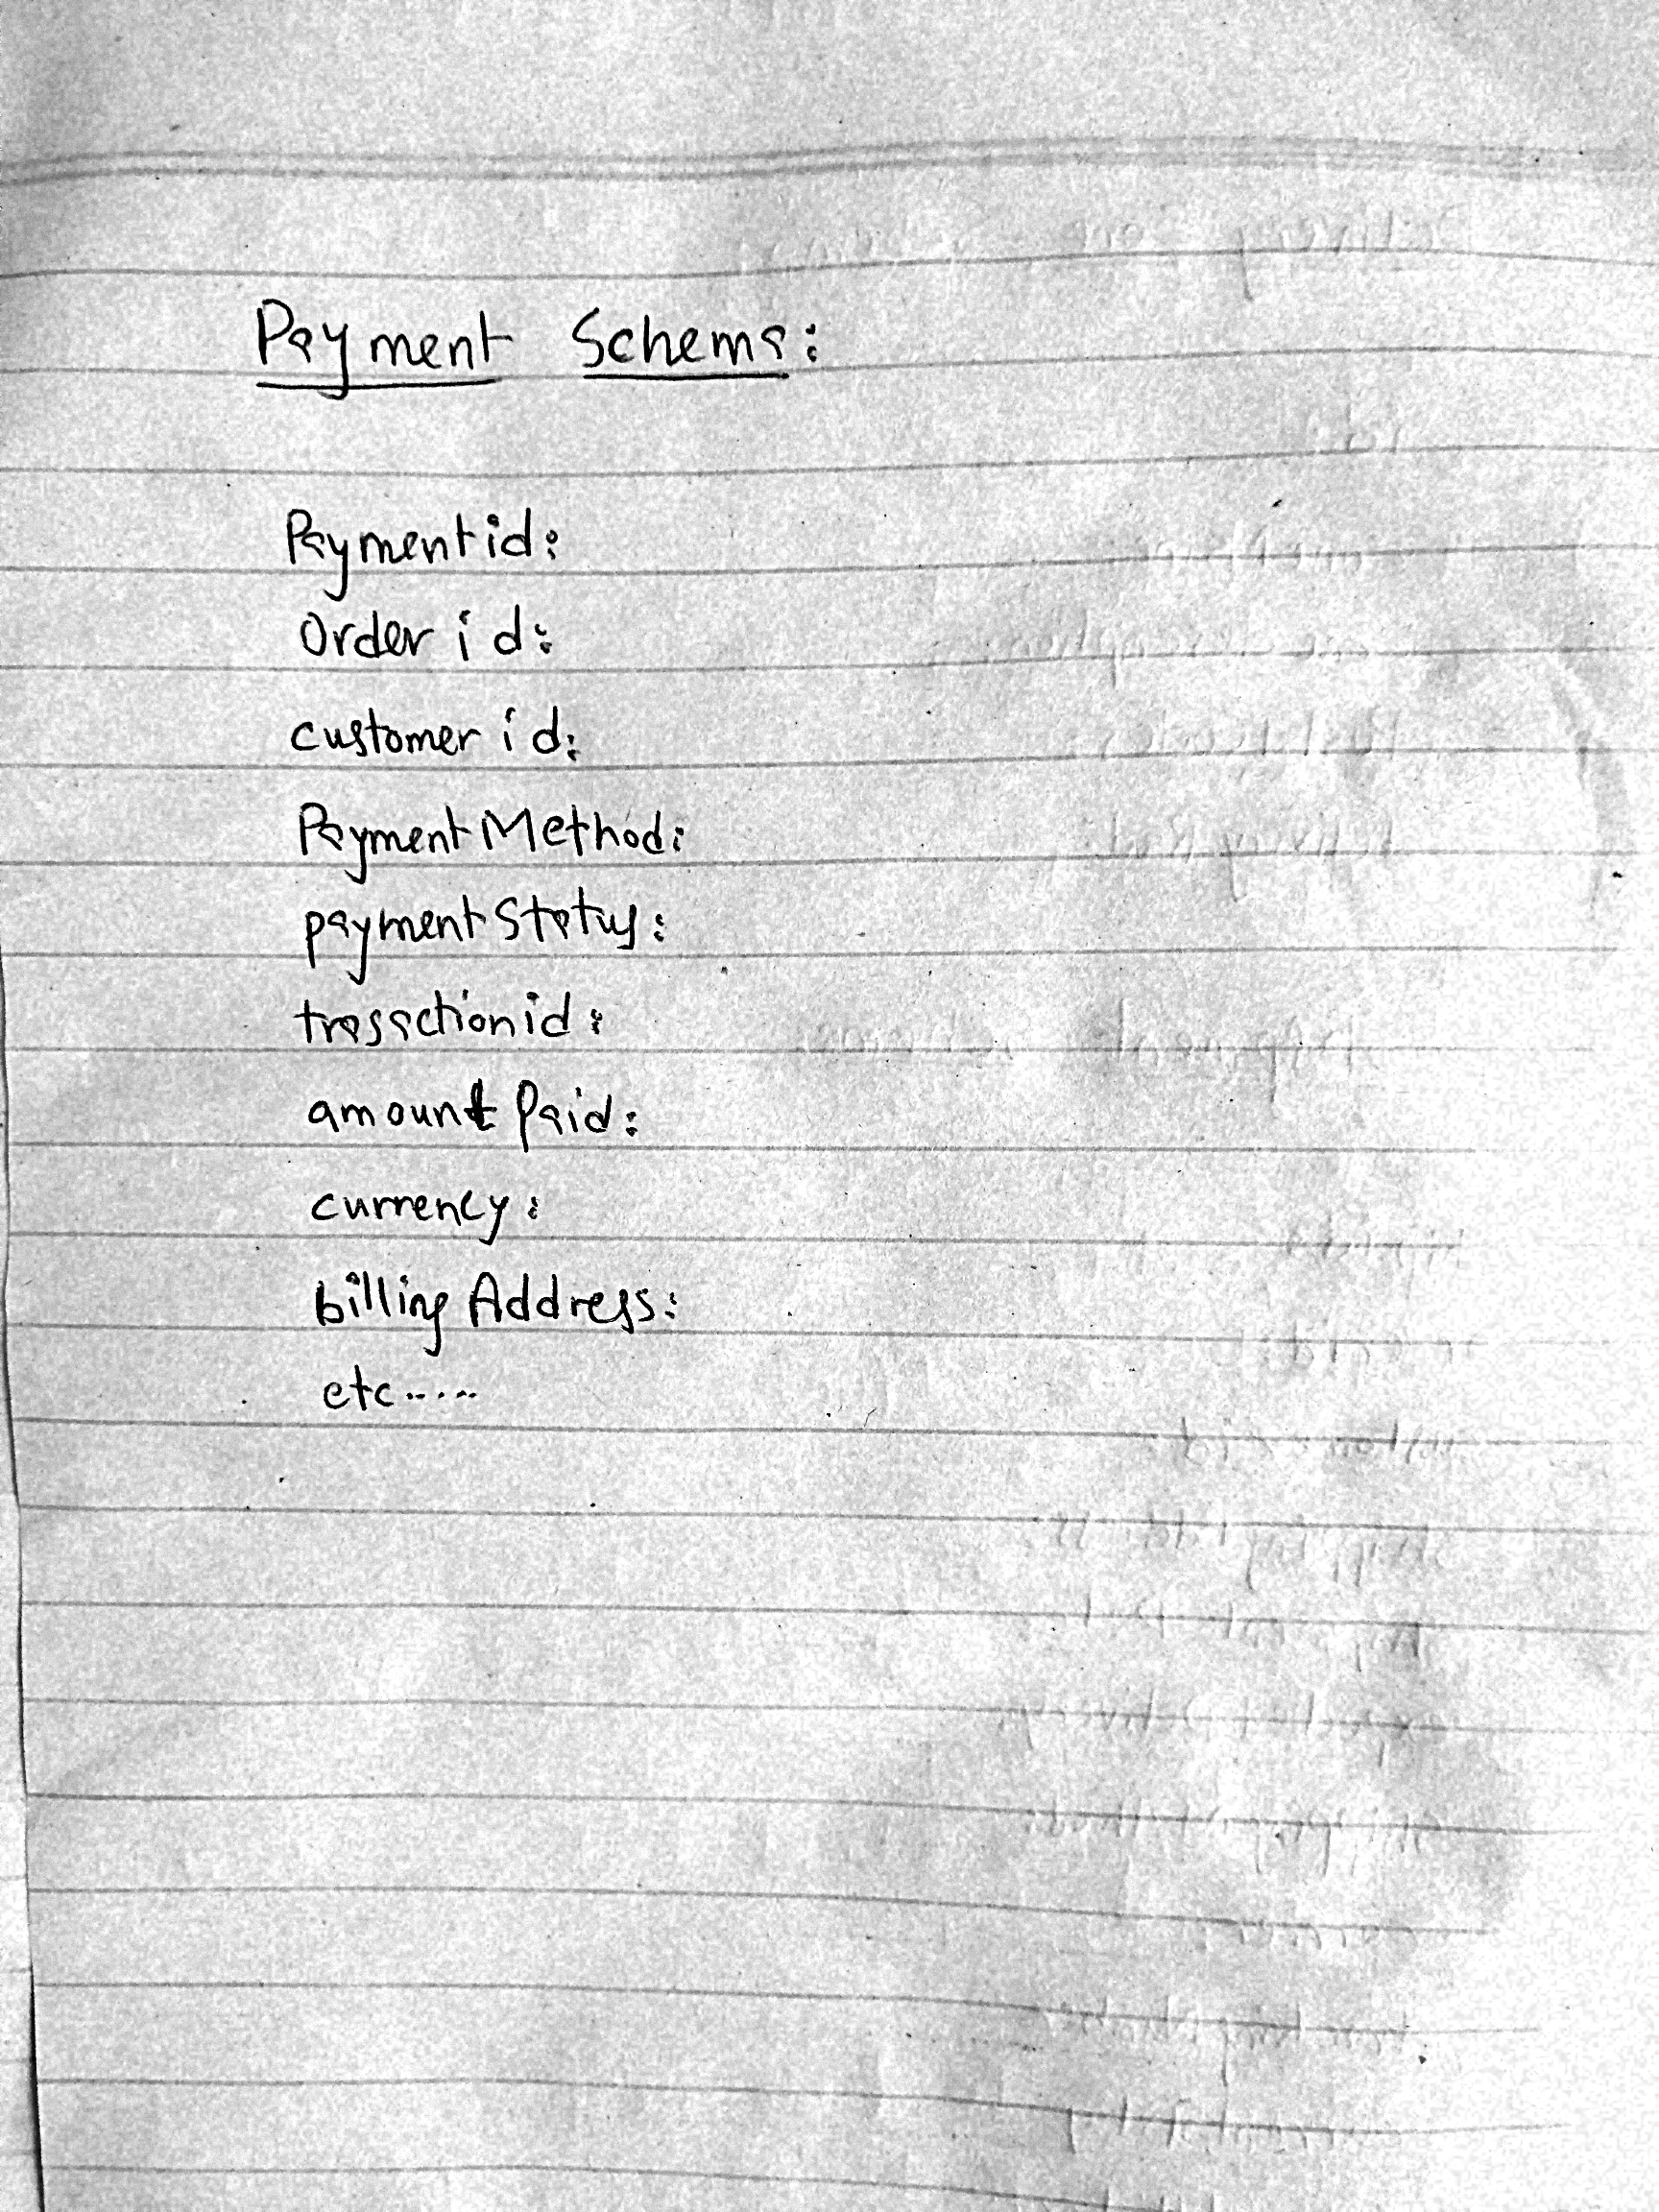 Payment Schema:
Paymentid:
Order id:
customer id:
Payment Method:
payment Status:
trasactionid:
amount Paid:
currency:
billing Address:
etc.....